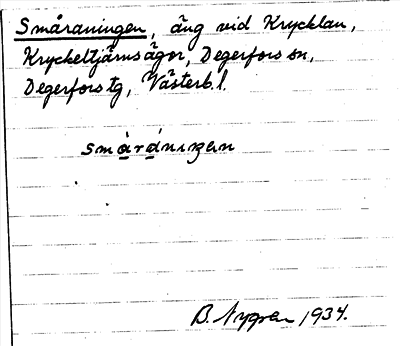 Småraningen, äng vid Krycklan,
Kryckeltjärnsägor, Degerfors sn,
Degerfors tg, Västerb. l.
smårániŋan
B. Nygren 1934.